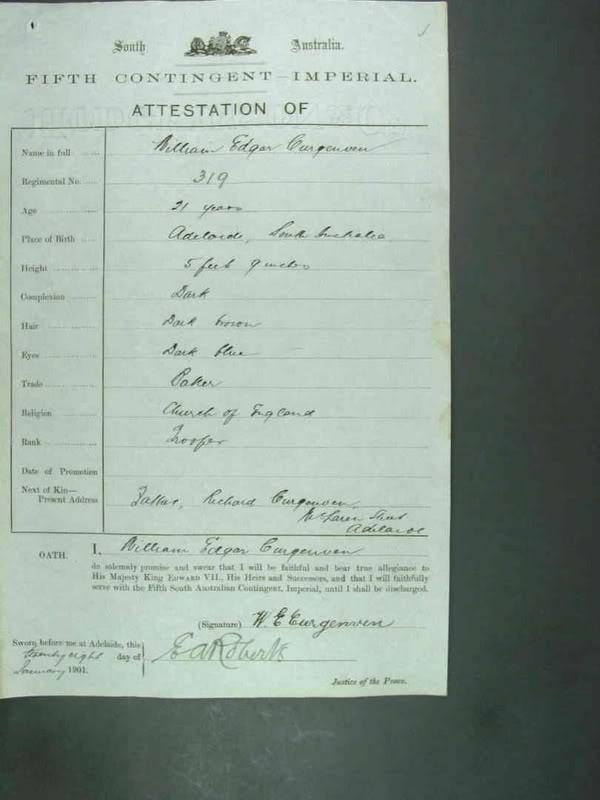 South Australia.
FIFTH CONTINGENT—IMPERIAL.
ATTESTATION OF
Name in full ...... William Edgar Curgenven
Regimental No. .... 319
Age ............ 21 years
Place of Birth .... Adelaide, South Australia
Height ............ 5 feet 9 inches
Complexion ........ Dark
Hair ............ Dark brown
Eyes ............ Dark blue
Trade ............ Baker
Religion .......... Church of England
Rank ............ Trooper
Date of Promotion
Next of Kin—
Present Address Father, Richard Curgenven,
McLaren Street
Adelaide
OATH. I, William Edgar Curgenven
do solemnly promise and swear that I will be faithful and bear true allegiance to
His Majesty King EDWARD VII., His Heirs and Successors, and that I will faithfully
serve with the Fifth South Australian Contingent, Imperial, until I shall be discharged.
(Signature) W. E. Curgenven
Sworn before me at Adelaide, this
twenty eight day of
January 1901.
E A Roberts
Justice of the Peace.